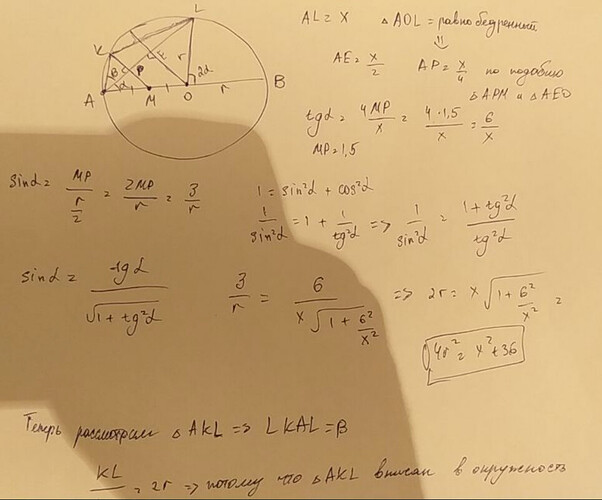 K
L
E
B
C
P
r
2α
α
A
M
O
r
B
AL = x  △AOL = равнобедренный
⇓
AE = x/2  AP = x/4 по подобию
△APM и △AEO
tgα = 4MP/x = 4·1,5/x = 6/x
MP = 1,5
sinα = MP/(r/2) = 2MP/r = 3/r
1 = sin²α + cos²α
1/sin²α = 1 + 1/tg²α => 1/sin²α = (1+tg²α)/tg²α
sinα = tgα/√(1+tg²α)  3/r = 6/(x√(1+6²/x²)) => 2r = x√(1+6²/x²) =
4r² = x²+36
Теперь рассмотрим △AKL => ∠KAL = β
KL/ = 2r => потому что △AKL вписан в окружность